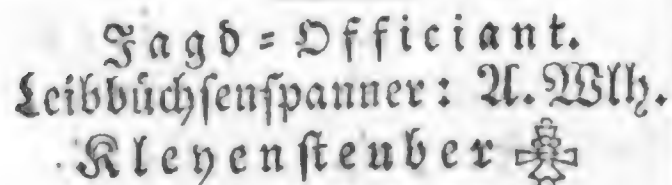 Jagd=Officiant.
Leibbüchsenspanner: A. Wlh.
Kleyensteuber